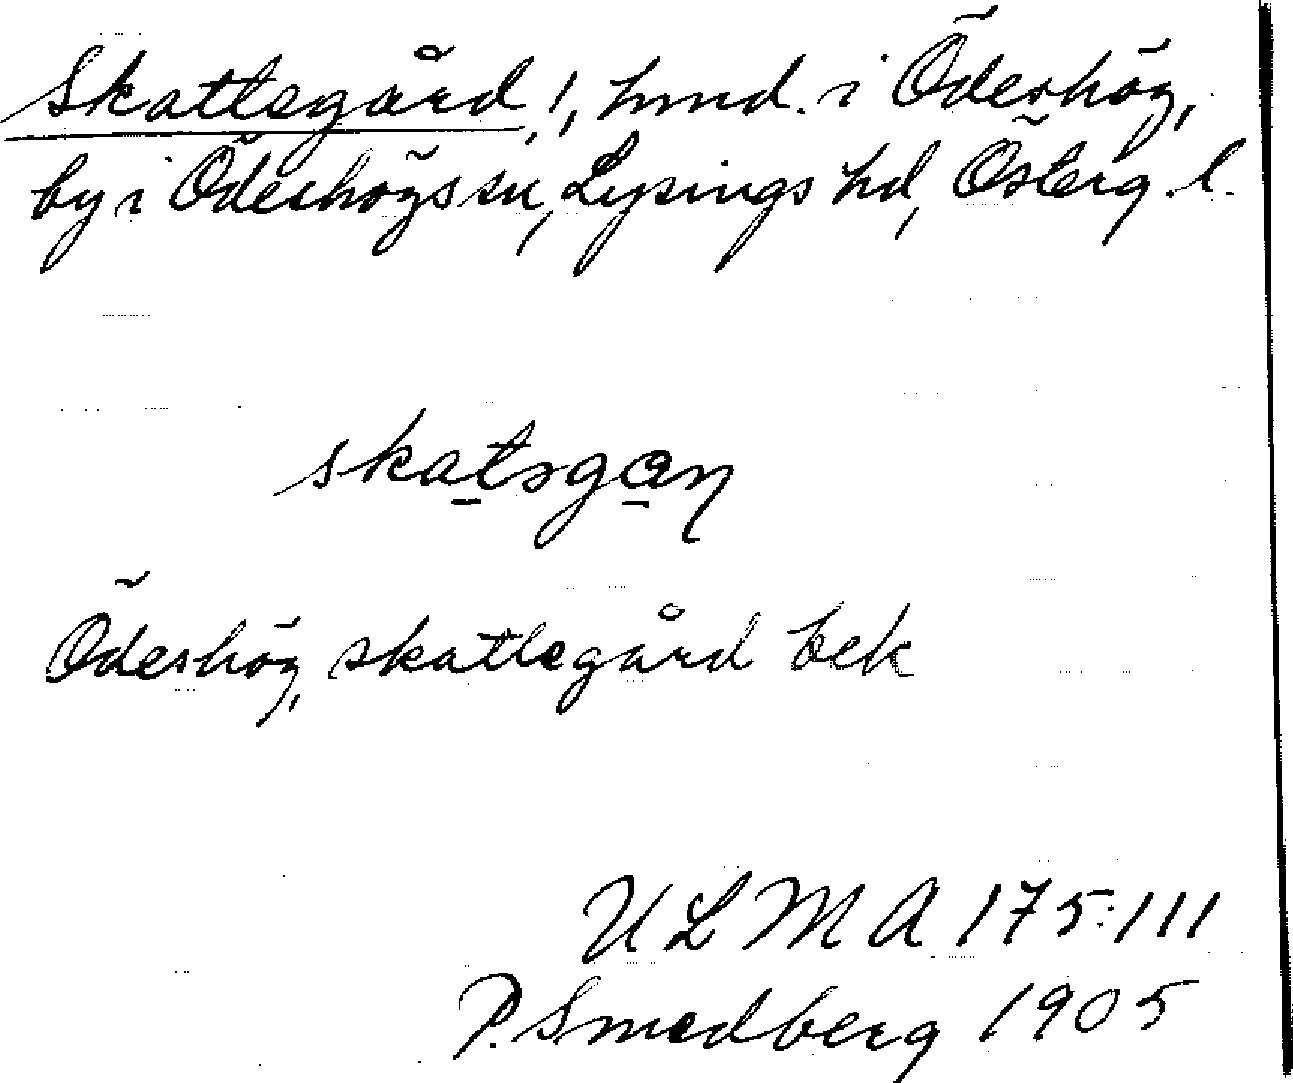 Skattegård, !, hmd. i Ödeshög,
by i Ödeshögs sn, Lysings hd, Österg. l.
skatsgan
Ödeshög, skattegård bek
ULMA 175:111
P. Smedberg 1905